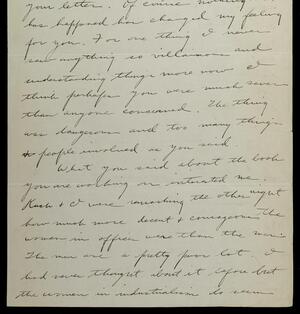 your letter. Of course nothing
has happened has changed my feeling
for you. For one thing I never
saw anything so villainous and
understanding things more now I
think perhaps you were much saner
than anyone concerned. The thing
was dangerous and too many things
& people involved as you said.
What you said about the book
you are working on interested me.
& I were remarking the other night
how much more decent & courageous the
women in offices were than the men.
The men are a pretty poor lot. I
had never thought about it before but
the women in industrialism do seem